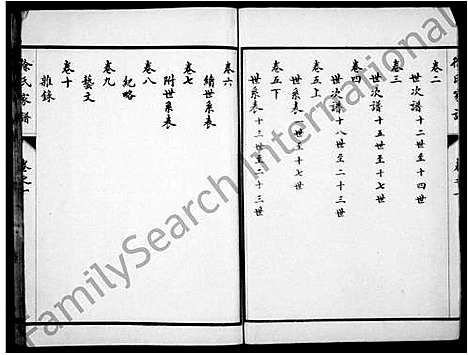 卷二
世次譜 十二世至十四世
卷三
世次譜 十五世至十七世
卷四
世次譜 十八世至二十三世
卷五上
世系表 一世至十七世
卷五下
世系表 十三世至二十三世
卷六
續世系表
卷七
附世系表
卷八
紀略
卷九
藝文
卷十
雜錄
徐氏家譜
卷之一
FamilySearch International